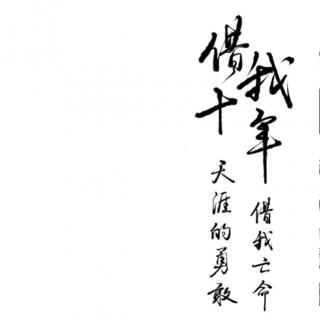 借我十年
借我亡命
天涯的勇敢